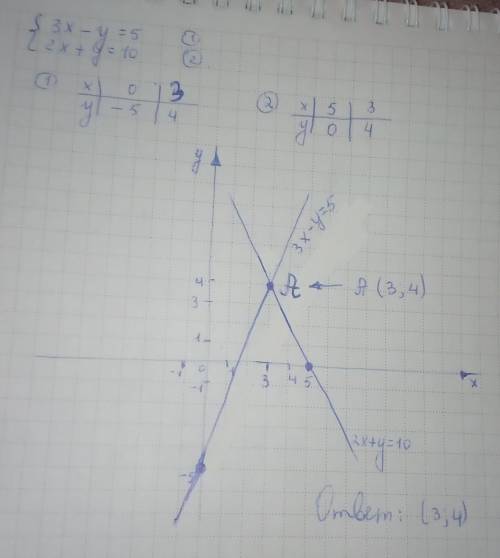 { 3x - y = 5 ①
2x + y = 10 ②
① x | 0 | 3
y | -5 | 4
② x | 5 | 3
y | 0 | 4
y
3x-y=5
4
A ← A (3,4)
3
1
-1 0 1 3 4 5 x
-1
2x+y=10
-5
Ответ: (3,4)